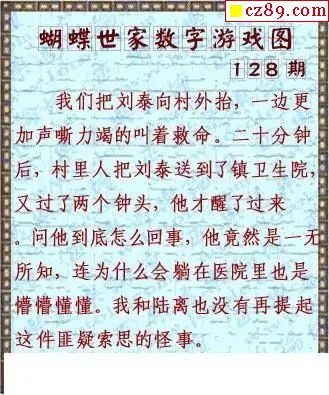 cz89.com
蝴蝶世家数字游戏图
128期
我们把刘泰向村外抬，一边更
加声嘶力竭的叫着救命。二十分钟
后，村里人把刘泰送到了镇卫生院，
又过了两个钟头，他才醒了过来
。问他到底怎么回事，他竟然是一无
所知，连为什么会躺在医院里也是
懵懵懂懂。我和陆离也没有再提起
这件匪疑索思的怪事。